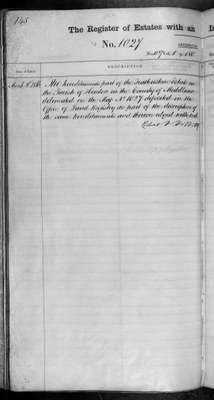 145
The Register of Estates with an
No. 1027
DESCRIPTION.
Hereditaments part of the Estate in
the Parish of Hendon in the County of Middlesex
delineated on the Map No 1027 deposited in the
Office of Land Registry as part of the description of
the same hereditaments and thereon edged with red.